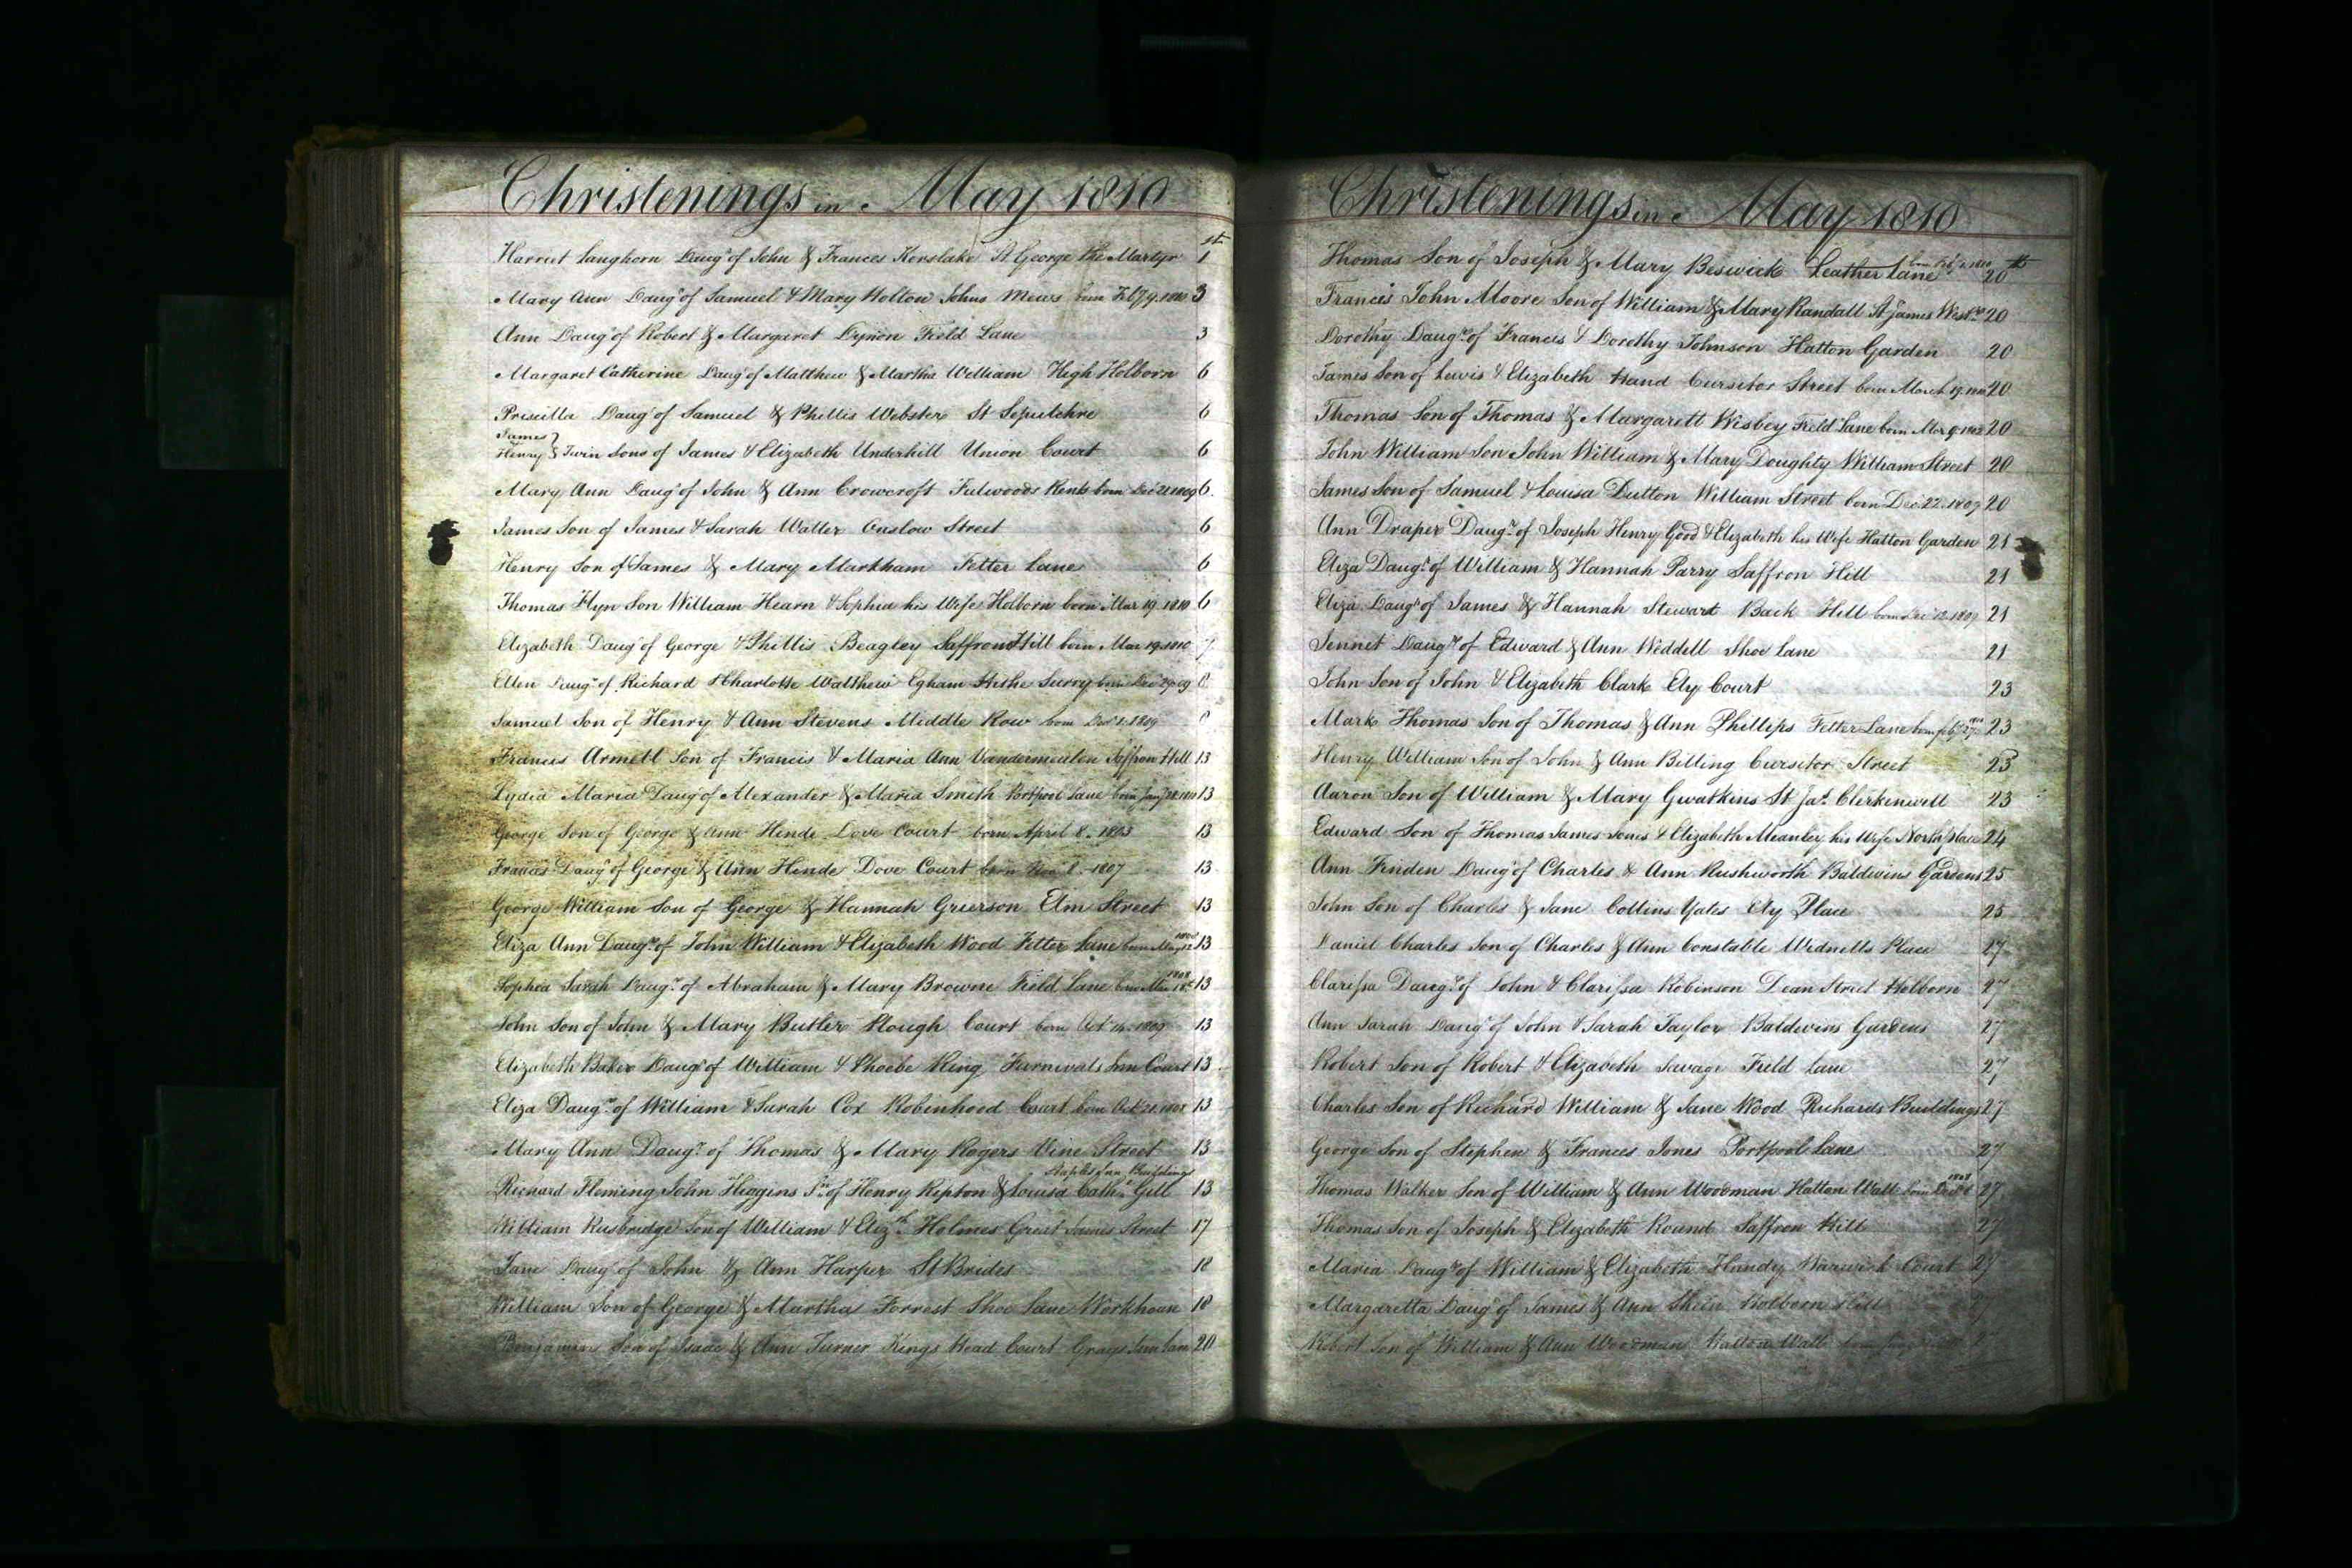 Christenings in May 1810
Harriet Langhorn Daugr of John & Frances Kerslake St George the Martyr 1st
Mary Ann Daugr of Samuel & Mary Holton Johns Mews born Feby 9. 1810 3
Ann Daugr of Robert & Margaret Field Lane 3
Margaret Catherine Daugr of Matthew & Martha William High Holborn 6
Priscilla Daugr of Samuel & Phillis Webster St Sepulchre 6
James }
Henry } Twin Sons of James & Elizabeth Underhill Union Court 6
Mary Ann Daugr of John & Ann Crowcroft Fulwoods Rents born Decr 1809 6
James Son of James & Sarah Walter Onslow Street 6
Henry Son of James & Mary Markham Fetter Lane 6
Thomas Flyn Son William Hearn & Sophia his Wife Holborn born Mar 19 1810 6
Elizabeth Daugr of George & Phillis Beagley Saffron Hill born Mar 19 1810 7
Ellen Daugr of Richard & Charlotte Walthew Egham Surry born Decr 29 09 8
Samuel Son of Henry & Ann Stevens Middle Row born 1809 8
Francis Armell Son of Francis & Maria Ann Vandermeulen Saffron Hill 13
Lydia Maria Daugr of Alexander & Maria Smith Portpool Lane born Jany 1810 13
George Son of George & Ann Hinde Dove Court born April 8. 1803 13
Frances Daugr of George & Ann Hinde Dove Court born Nov 8. 1807 13
George William Son of George & Hannah Grierson Elm Street 13
Eliza Ann Daugr of John William & Elizabeth Wood Fetter Lane born 13
Sophia Sarah Daugr of Abraham & Mary Browne Field Lane born 1808 13
John Son of John & Mary Butler Plough Court born Oct 14. 1809 13
Elizabeth Baker Daugr of William & Phoebe King Furnivals Inn Court 13
Eliza Daugr of William & Sarah Cox Robinhood Court born Oct 13
Mary Ann Daugr of Thomas & Mary Rogers Vine Street 13
Staples Inn Buildings
Richard Fleming John Higgins Sn of Henry Kipton & Louisa Cathe Gill 13
William Rusbridge Son of William & Elizth Holmes Great James Street 17
Jane Daugr of John & Ann Harper St Brides 18
William Son of George & Martha Forrest Shoe Lane Workhouse 18
Benjamin Son of Isaac & Ann Turner Kings Head Court Grays Inn Lane 20
Christenings in May 1810
Thomas Son of Joseph & Mary Beswick Leather Lane born 20th
Francis John Moore Son of William & Mary Randall St James Westr 20
Dorothy Daugr of Francis & Dorothy Johnson Hatton Garden 20
James Son of Lewis & Elizabeth Hand Cursitor Street born March 19. 1810 20
Thomas Son of Thomas & Margarett Wisbey Field Lane born Mar 9 20
John William Son John William & Mary Doughty William Street 20
James Son of Samuel & Louisa Dutton William Street born Dec 22. 1809 20
Ann Draper Daugr of Joseph Henry Good & Elizabeth his Wife Hatton Garden 21
Eliza Daugr of William & Hannah Parry Saffron Hill 21
Eliza Daugr of James & Hannah Stewart Back Hill born Dec 12 1809 21
Jennet Daugr of Edward & Ann Weddell Shoe Lane 21
John Son of John & Elizabeth Clark Ely Court 23
Mark Thomas Son of Thomas & Ann Phillips Fetter Lane born Feby 27 1810 23
Henry William Son of John & Ann Billing Cursitor Street 23
Aaron Son of William & Mary Gwatkins St Jas Clerkenwell 23
Edward Son of Thomas James Jones & Elizabeth Meanley his Wife North place 24
Ann Finden Daugr of Charles & Ann Rushworth Baldwins Gardens 25
John Son of Charles & Jane Collins Yates Ely Place 25
Daniel Charles Son of Charles & Ann Constable Widnells Place 27
Clarissa Daugr of John & Clarissa Robinson Dean Street Holborn 27
Ann Sarah Daugr of John & Sarah Taylor Baldwins Gardens 27
Robert Son of Robert & Elizabeth Savage Field Lane 27
Charles Son of Richard William & Jane Wood Richards Buildings 27
George Son of Stephen & Frances Jones Portpool Lane 27
Thomas Walker Son of William & Ann Woodman Hatton Wall born Decr 1808 27
Thomas Son of Joseph & Elizabeth Round Saffron Hill 27
Maria Daugr of William & Elizabeth Hundy Warwick Court 27
Margaretta Daugr of James & Ann Sheen Holborn Hill 27
Robert Son of William & Ann Woodman Hatton Wall born